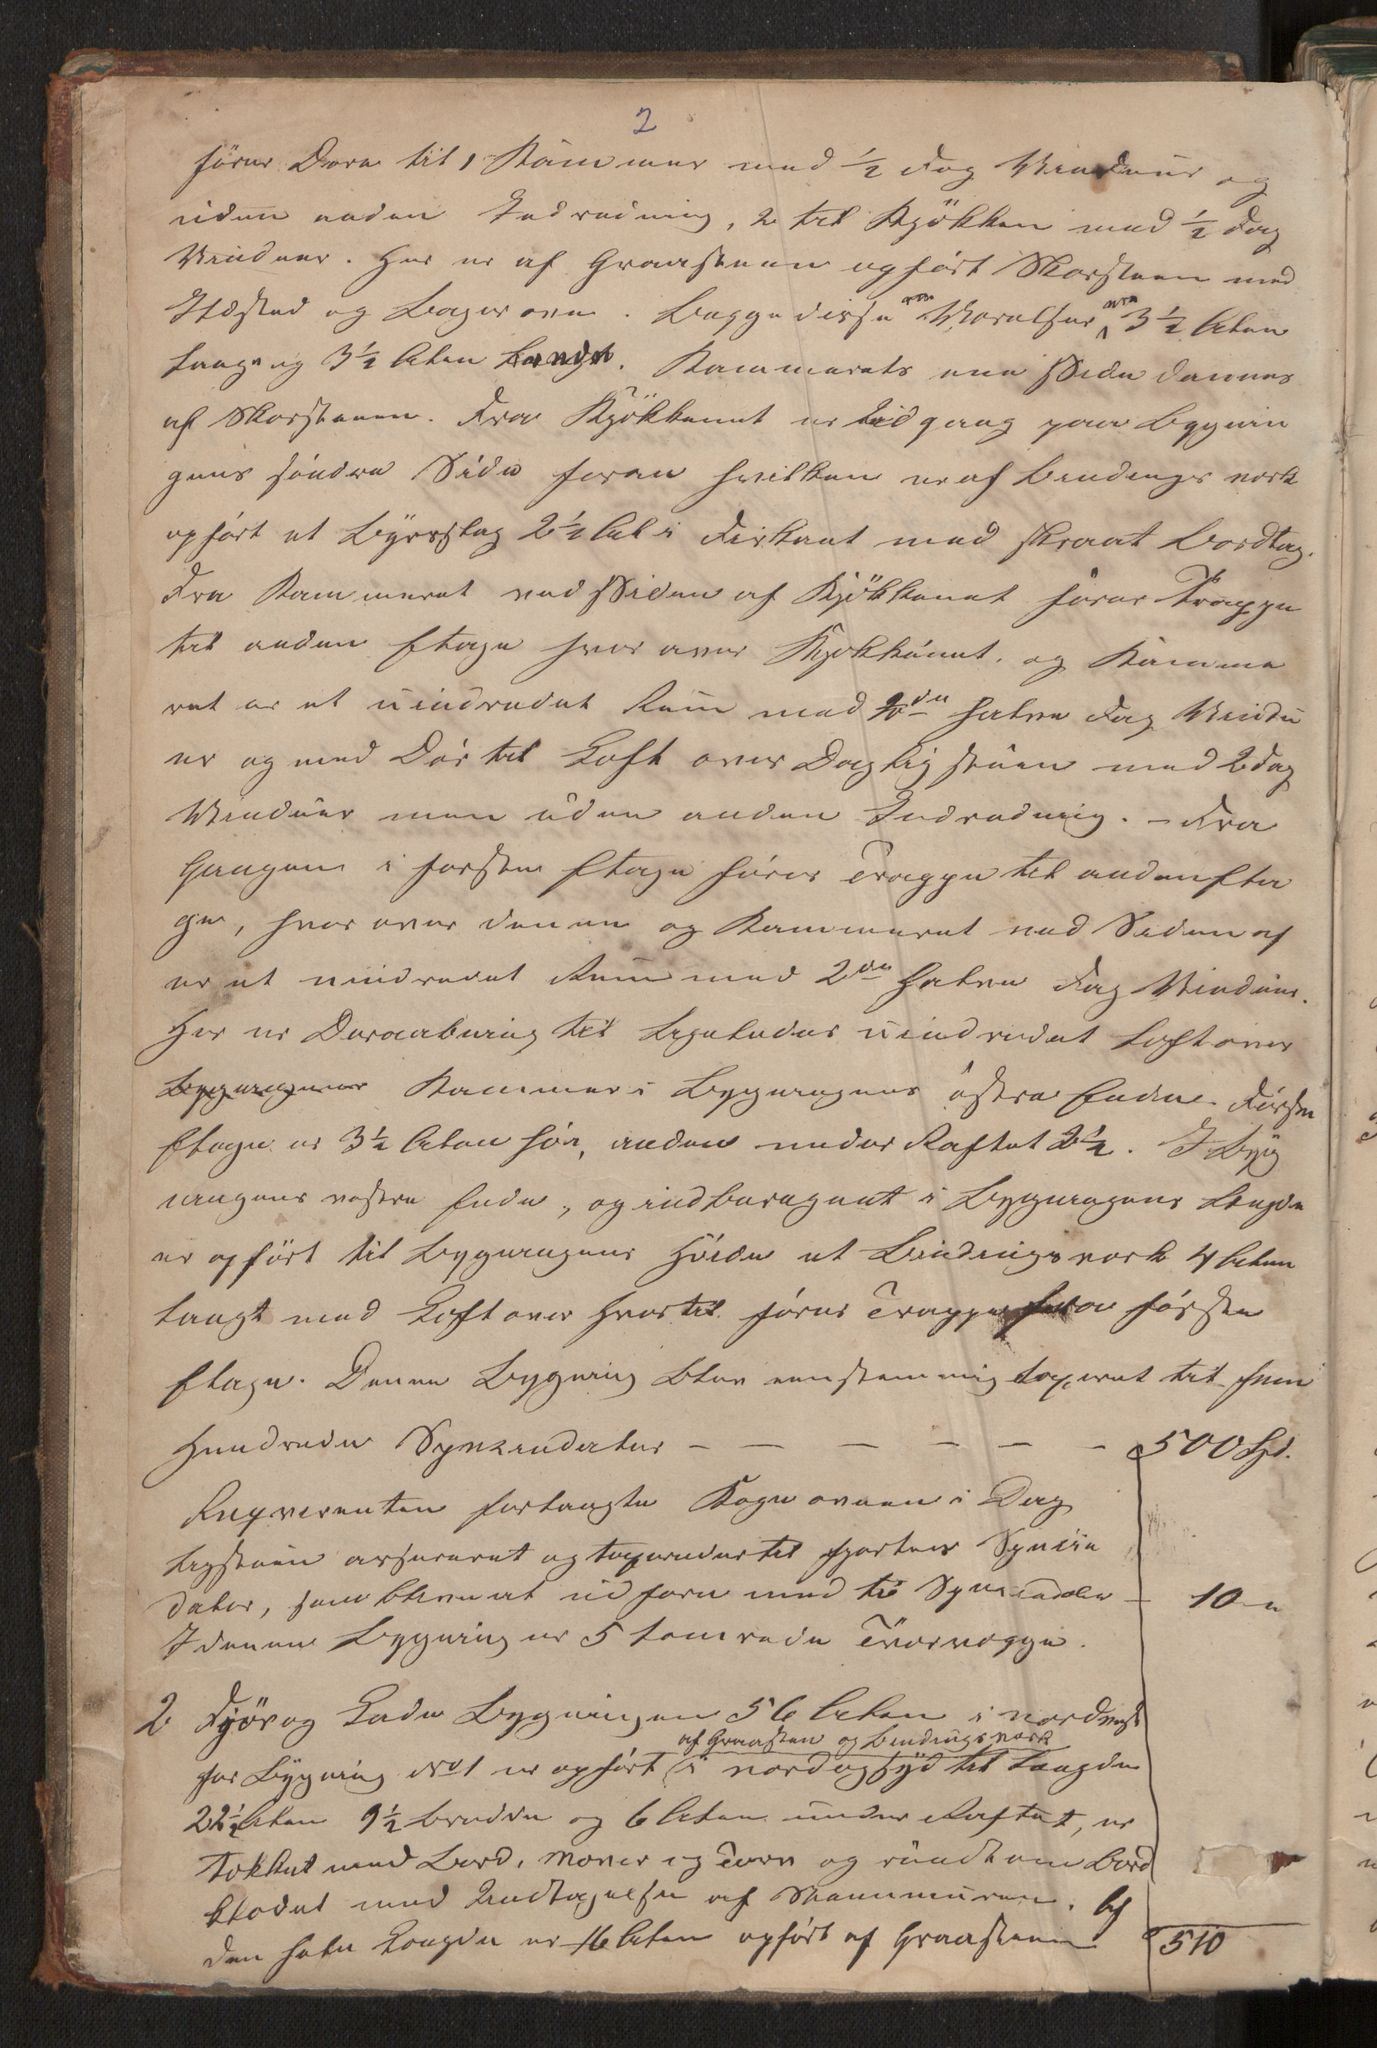 2
fører Døre til 1 Kammer med 1/2 Fag Vinduer og
uden anden Indredning, 2 til Kjøkken med 1/2 Fag
Vinduer. Her er af Graasteen opført Skorsteen med
Ildsted og Bagerovn. Begge disse Værelser ere 3 1/2 Alen
lange og 3 1/2 Alen brede. Kammerets ene Side dannes
af Skorstenen. Fra Kjøkkenet er Udgang paa Bygnin
gens søndre Side foran hvilken er af Bindingsverk
opført et Byrslag 2 1/2 Al i Firkant med skraat Bordtag.
Fra Kammeret ved Siden af Kjøkkenet fører Trappe
til anden Etage hvor over Kjøkkenet og Kamme
ret er et uindredet Rum med 2de halve Fag Vindu
er og med Dør til Loft over Dagligstuen med 2 Fag
Vinduer men uden anden Indredning. - Fra
Gangen i første Etage fører Trappe til anden Eta
ge, hvor over denne og Kammeret ved Siden af
er et uindredet Rum med 2de halve Fag Vinduer.
Her er Døraabning til ligeledes uindredet Loft over
Bygningens Kammer i Bygningens østre Ende. Første
Etage er 3 1/2 Alen høi, anden under Raftet 2 1/2. I Byg
ningens vestre Ende, og indberegnet i Bygningens Længde
er opført til Bygningens Høide et Bindingsverk 4 Alen
langt med Loft over hvortil fører Trappe fra første
Etage. Denne Bygning blev eenstemmig taxeret til fem
Hundrede Speciedaler - - - - - - 500 Spd.
Reqvirenten forlangte Kogeovnen i Dag
ligstuen assureret og taxeredes til Spécie
daler, som blev at udføre med ti Speciedaler - 10 -
I denne Bygning er 5 tømrede Tværvægge.
2 Fjøs og Lade Bygningen 56 Alen i nordvest
af Graasten og Bindingsverk
for Bygning No 1 er opført i nord og syd til Længde
22 1/2 Alen 9 1/2 bredde og 6 Alen under Raftet, er
tækket med Bord, Næver og Torv og rundt om bord
klædet med Undtagelse af Steenmuren. Af
den hele Længde er 16 Alen opført af Graasteen
510